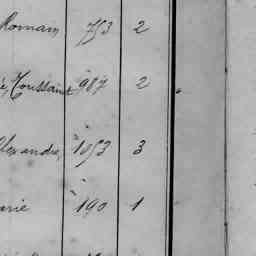 Romain 753 2
é, Toussaint 987 2
lexandre, 1053 3
arie 190 1